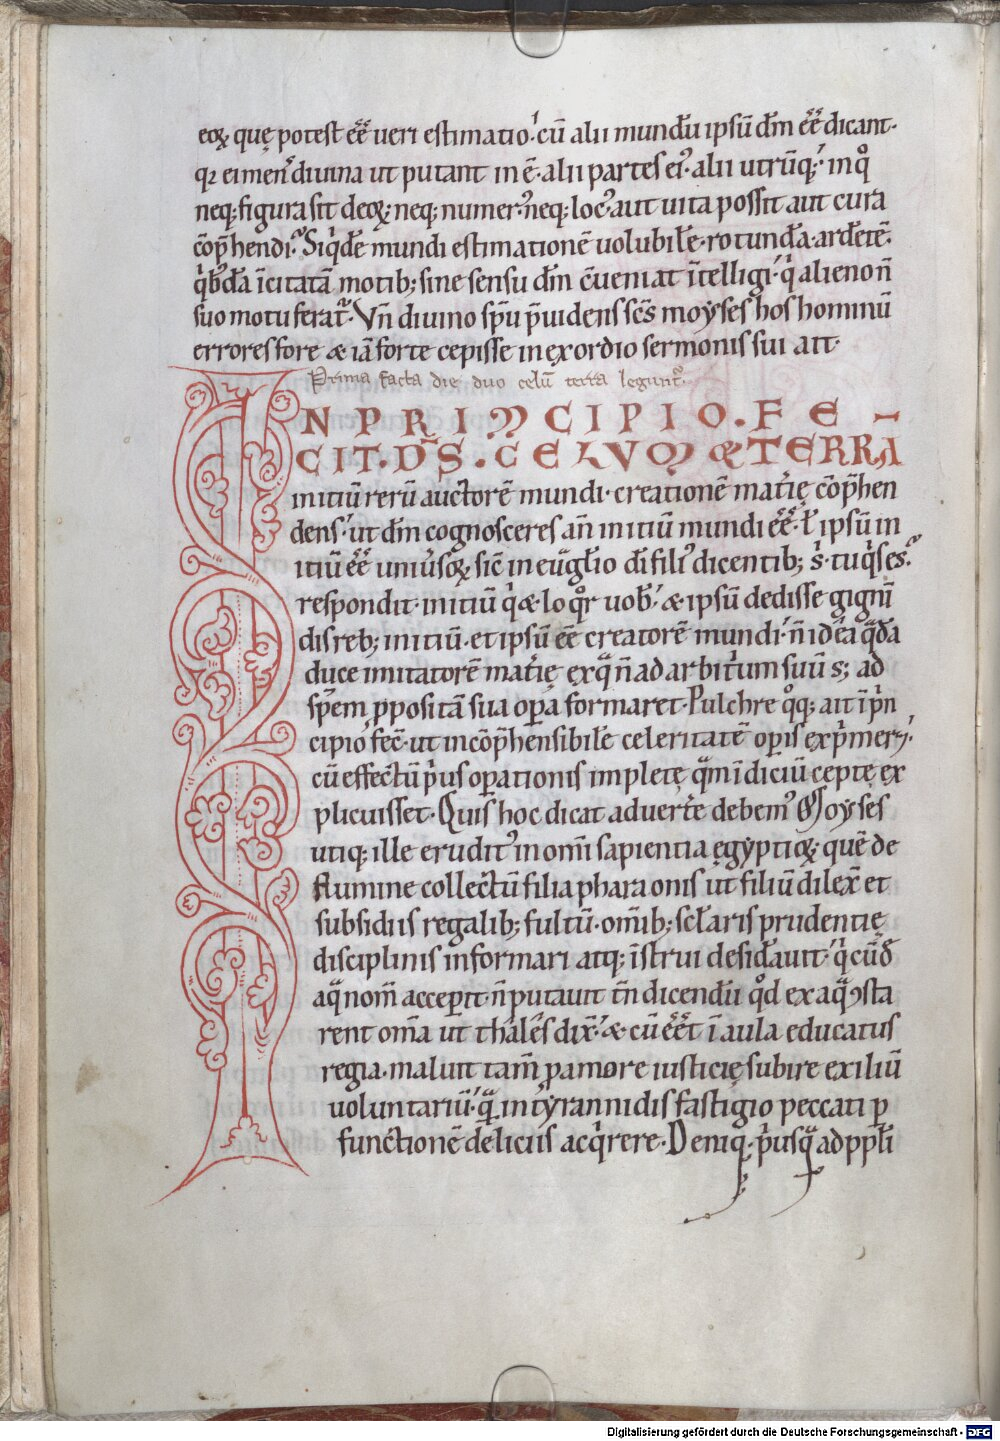 eoꝝ quę potest eē ueri estimatio. cū alii mundū ipsū dm̄ eē dicant.
qꝛ ei mens diuina ut putant inē. alii partes eiꝰ. alii utrūq;. in qͦ
neq; figura sit deoꝝ; neq; numerꝰ. neq; locꝰ. aut uita possit aut cura
cōp̄hendi. Siqͥdē mundi estimationē uolubilē. rotundā. ardētē.
qͥbꝰdā īcitatā motib; sine sensu dm̄ cueniat ītelligi. qͥ alieno n̄
suo motu feratᷣ. Vn̄ diuino spū p̄uidens scs̄ moyses hos hominū
errores fore & iā forte cepisse in exordio sermonis sui ait.
Prima facta die duo celū terra leguntᷣ.
IN PRINCIPIO. FE-
CIT. DS̄. CELVM & TERRĀ
initiū rerū auctorē mundi. creationē mat̄ię cōp̄hen
dens. ut dm̄ cognosceres an̄ initiū mundi eē. ł ipsū in
itiū eē uniuꝰsoꝝ sic̄ in euglio dī filiꝰ dicentib; s̄. tu qͥs es.
respondit. initiū qͥ & loqͦr uob. & ipsū dedisse gignn̄
dis reb; initiū. et ipsū eē creatorē mundi. n̄ idea qͣdā
duce imitatorē mat̄ię ex qͣ n̄ ad arbitͥum suū s; ad
spēm ꝓpositā sua oꝑa formaret. Pulchre qͦq; ait ī pͥn
cipio fec̄. ut incōp̄hensibilē celeritatē oꝑis expͥmer&.
cū effectū pͥus oꝑationis implete, qͣm īdiciū cepte, ex
plicuisset. Quis hoc dicat aduert̄e debemꝰ Moyses
utiq; ille eruditꝰ in omī sapientia ęgyptioꝝ; quē de
flumine collectū filia pharaonis ut filiū dilex̄ et
subsidiis regalib; fultū. omīb; scłaris prudentię
disciplinis informari atq; īstrui desid̄auit. qͥ cū ď
aqͣ nom̄ acceꝑit. n̄ putauit tn̄ dicendū qͦd ex aqͣ ꝯsta
rent om̄a ut thales dix̄. & cū eēt ī aula educatus
regia. maluit tam̄ ꝓ amore iusticię subire exiliū
uoluntariū. qͣm in tyrannidis fastigio peccati ꝑ
functionē deliciis acqͥrere. Deniq; pͥusqͣ ad ppłi
Digitalisierung gefördert durch die Deutsche Forschungsgemeinschaft - DFG